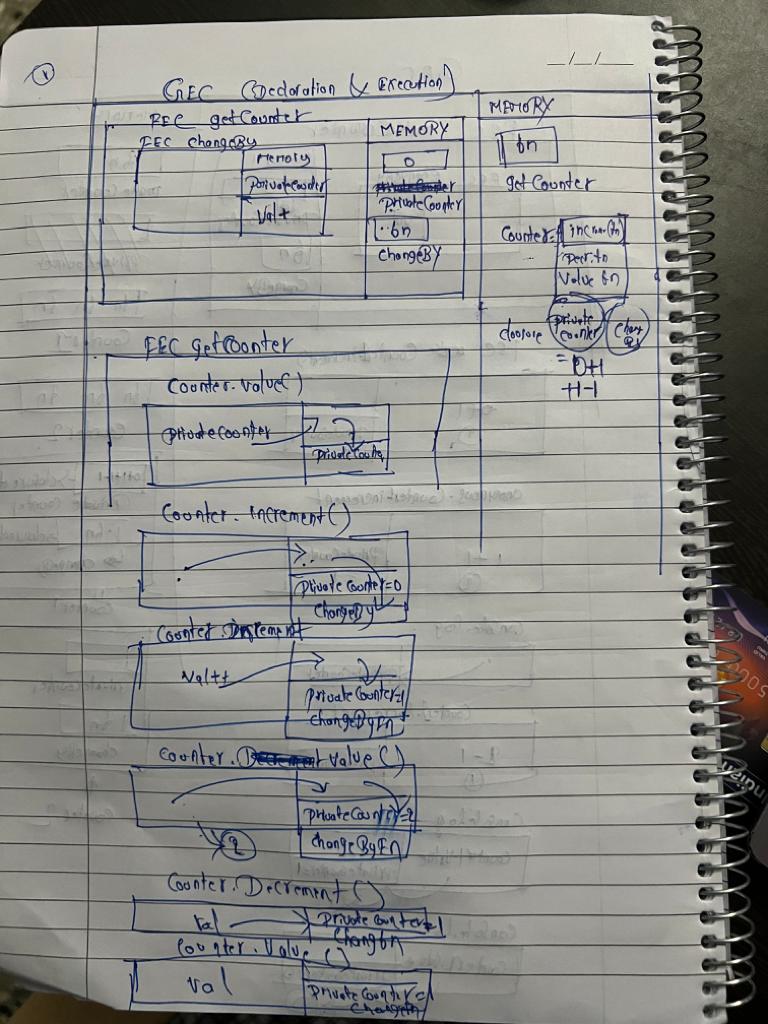 1
__/__/__
GEC (Declaration & Execution)
MEMORY
FEC getCounter
MEMORY
FEC changeBy
Memory
0
fn
privateCounter
privateCounter
getCounter
val +
..fn
Counter =
changeBY
Decr. fn
Value fn
closure
private
counter
= 0+1
+1-1
FEC getCounter
Counter.value()
privateCounter
privateCounter
Counter.increment()
..
privateCounter=0
changeBy
Counter.Increment
val++
privateCounter=1
changeByFn
Counter.value()
privateCounter=2
changeByFn
2
Counter.Decrement()
val
privateCounter=1
Changfn
Counter.Value()
val
privateCounter=1